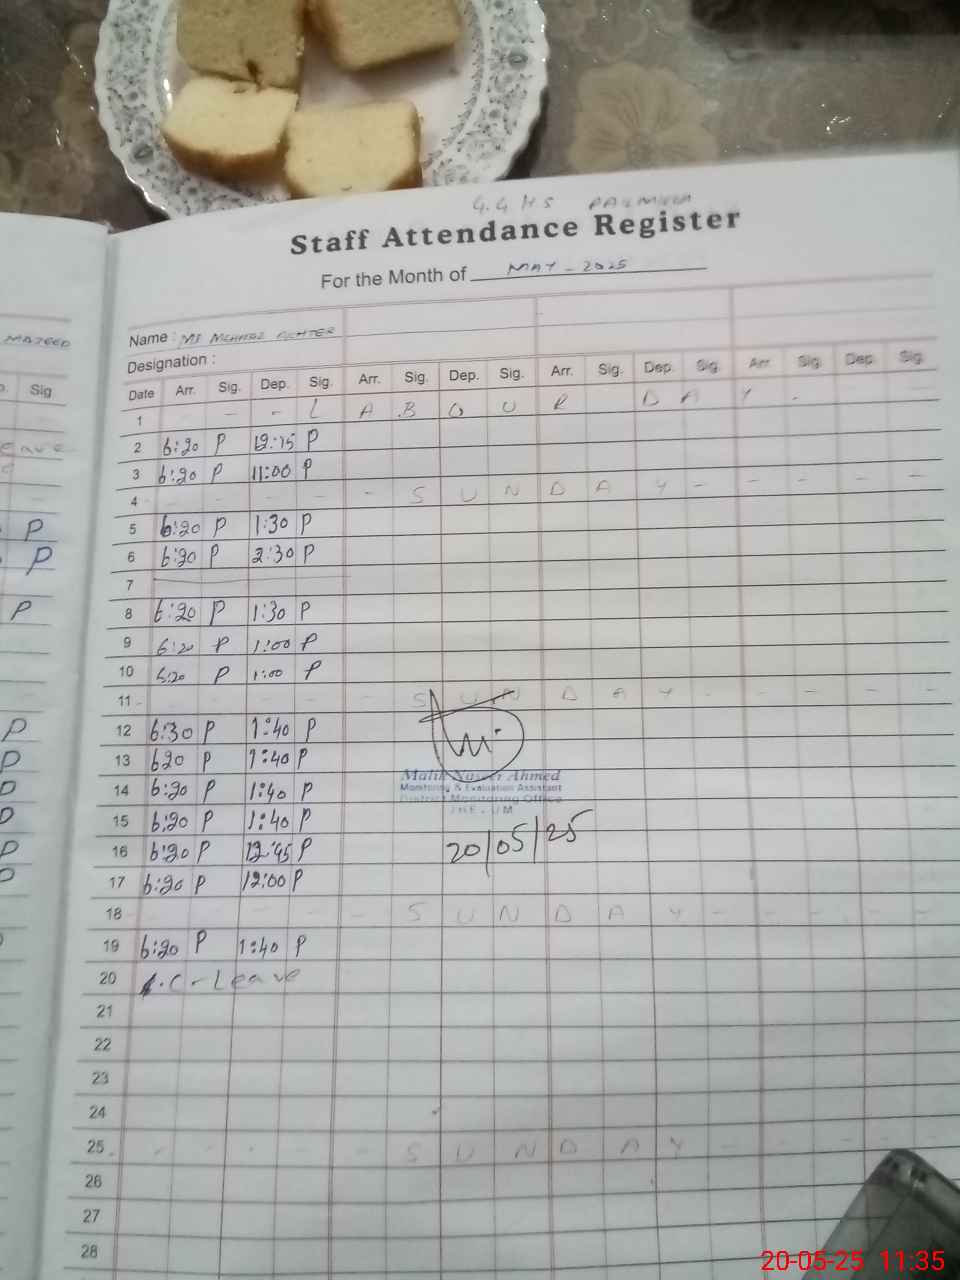 G.G H S
Staff Attendance Register
For the Month of MAY - 2025
MAJEED
Name :
Designation :
Sig
Date Arr. Sig. Dep. Sig. Arr. Sig. Dep. Sig. Arr. Sig. Dep. Sig. Arr. Sig. Dep. Sig.
1 - - L A B O U R D A Y -
2 6:20 P 12:15 P
3 6:20 P 11:00 P
4 - - - - - S U N D A Y - - - - -
P 5 6:20 P 1:30 P
P 6 6:20 P 2:30 P
7
P 8 6:20 P 1:30 P
9 6:20 P 1:00 P
10 6:20 P 1:00 P
11 - - - - - S U N D A Y - - - - -
P 12 6:30 P 1:40 P
P 13 620 P 1:40 P
P 14 6:20 P 1:40 P
P 15 6:20 P 1:40 P
P 16 6:20 P 12:45 P
P 17 6:20 P 12:00 P
Malik Naseer Ahmed
Monitoring & Evaluation Assistant
District Monitoring Office
20/05/25
18 - - - - - S U N D A Y - - - - -
19 6:20 P 1:40 P
20 C-Leave
21
22
23
24
25 - - - - S U N D A Y - - - - -
26
27
28
20-05-25 11:35